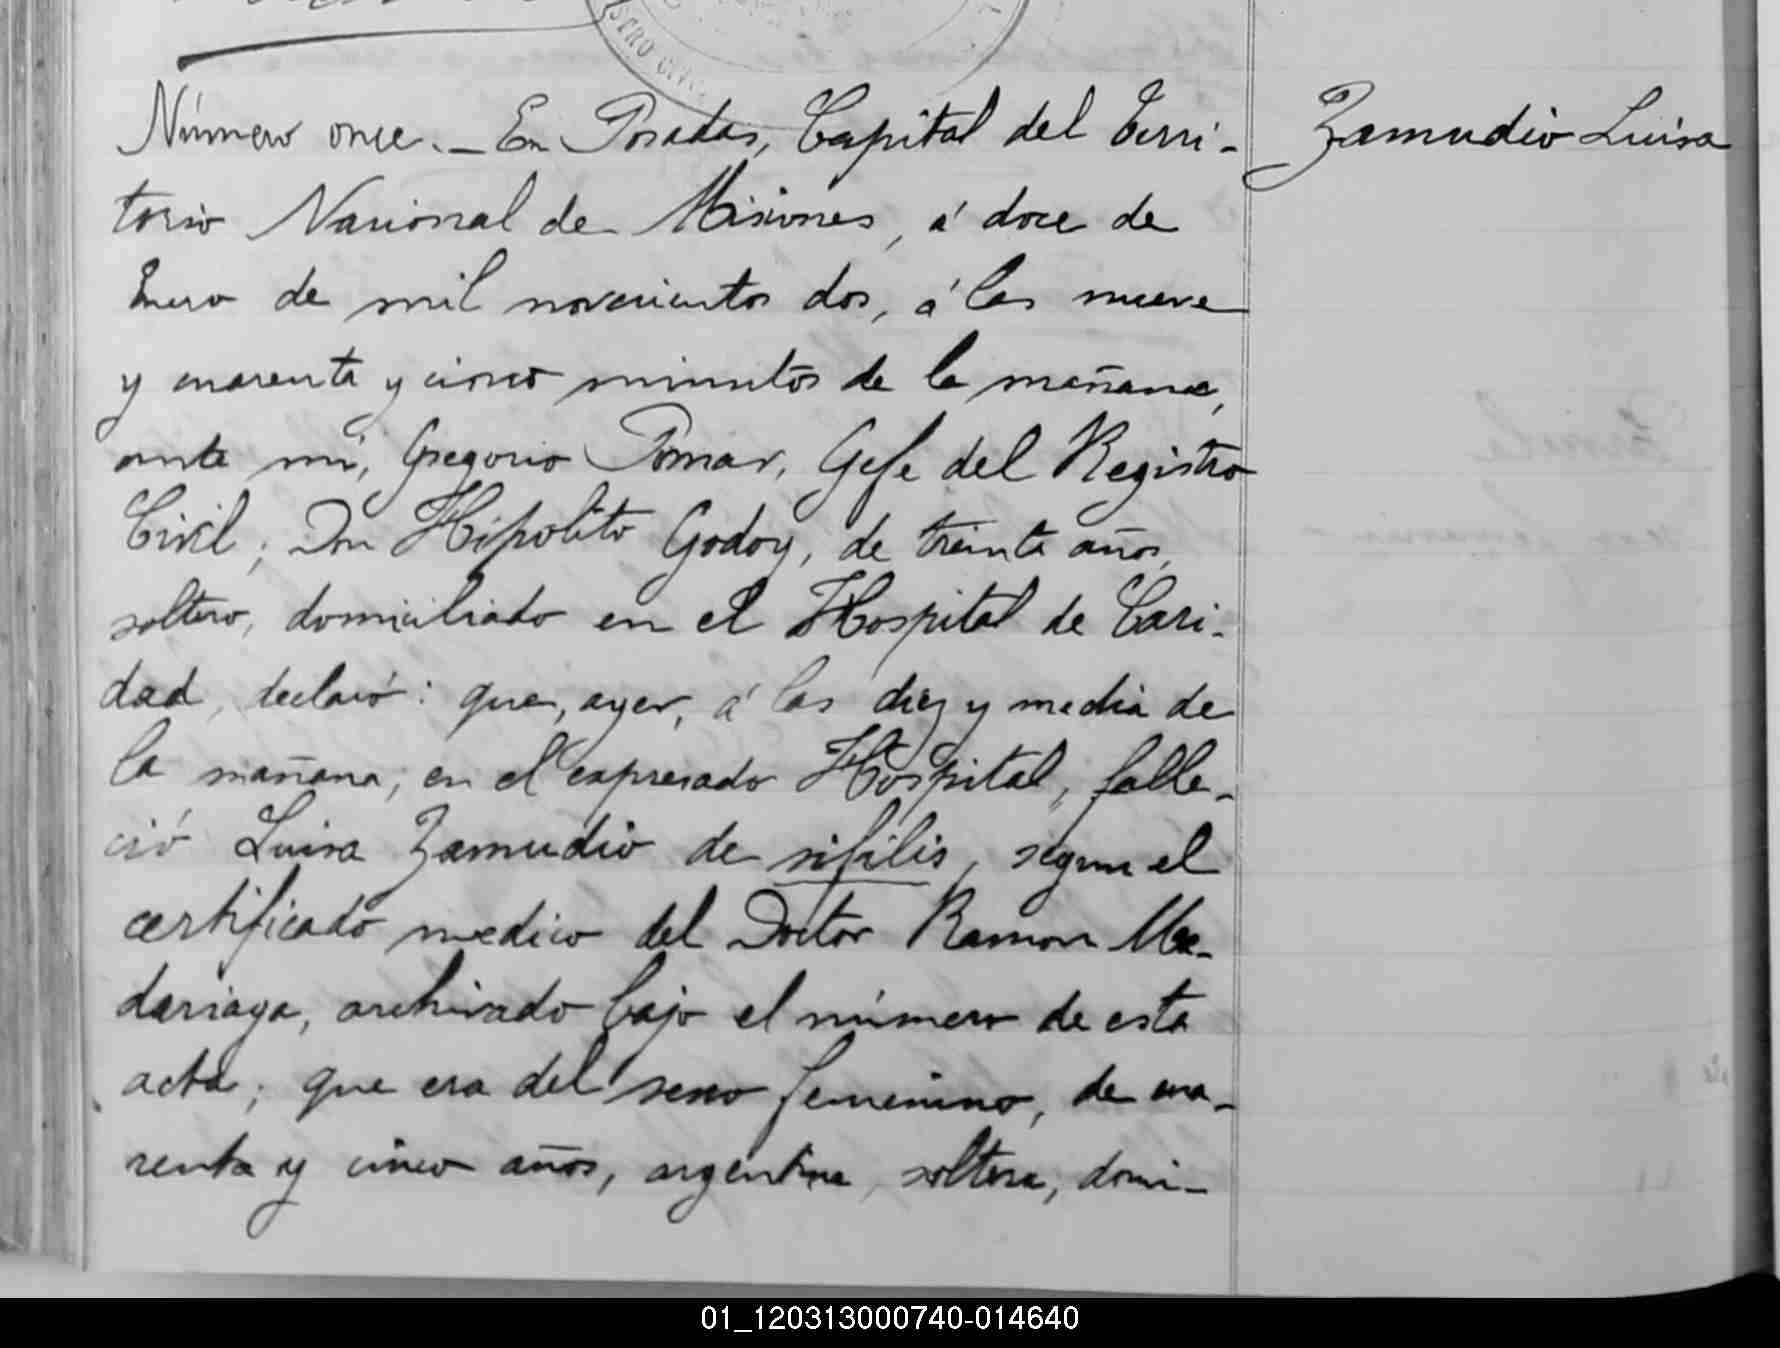 Número once._ En Posadas, Capital del Terri-
Zamudio Luisa
torio Nacional de Misiones, á doce de
Enero de mil novecientos dos, á las nueve
y cuarenta y cinco minutos de la mañana,
ante mi, Gregorio Pomar, Gefe del Registro
Civil; Don Hipolito Godoy, de treinta años,
soltero, domiciliado en el Hospital de Cari-
dad, declaró: que, ayer, á las diez y media de
la mañana, en el expresado Hospital, falle-
ció Luisa Zamudio de sifilis, segun el
certificado medico del Doctor Ramon Ma-
dariaga, archivado bajo el número de esta
acta; que era del sexo femenino, de cua-
renta y cinco años, argentina, soltera, domi-
01_120313000740-014640